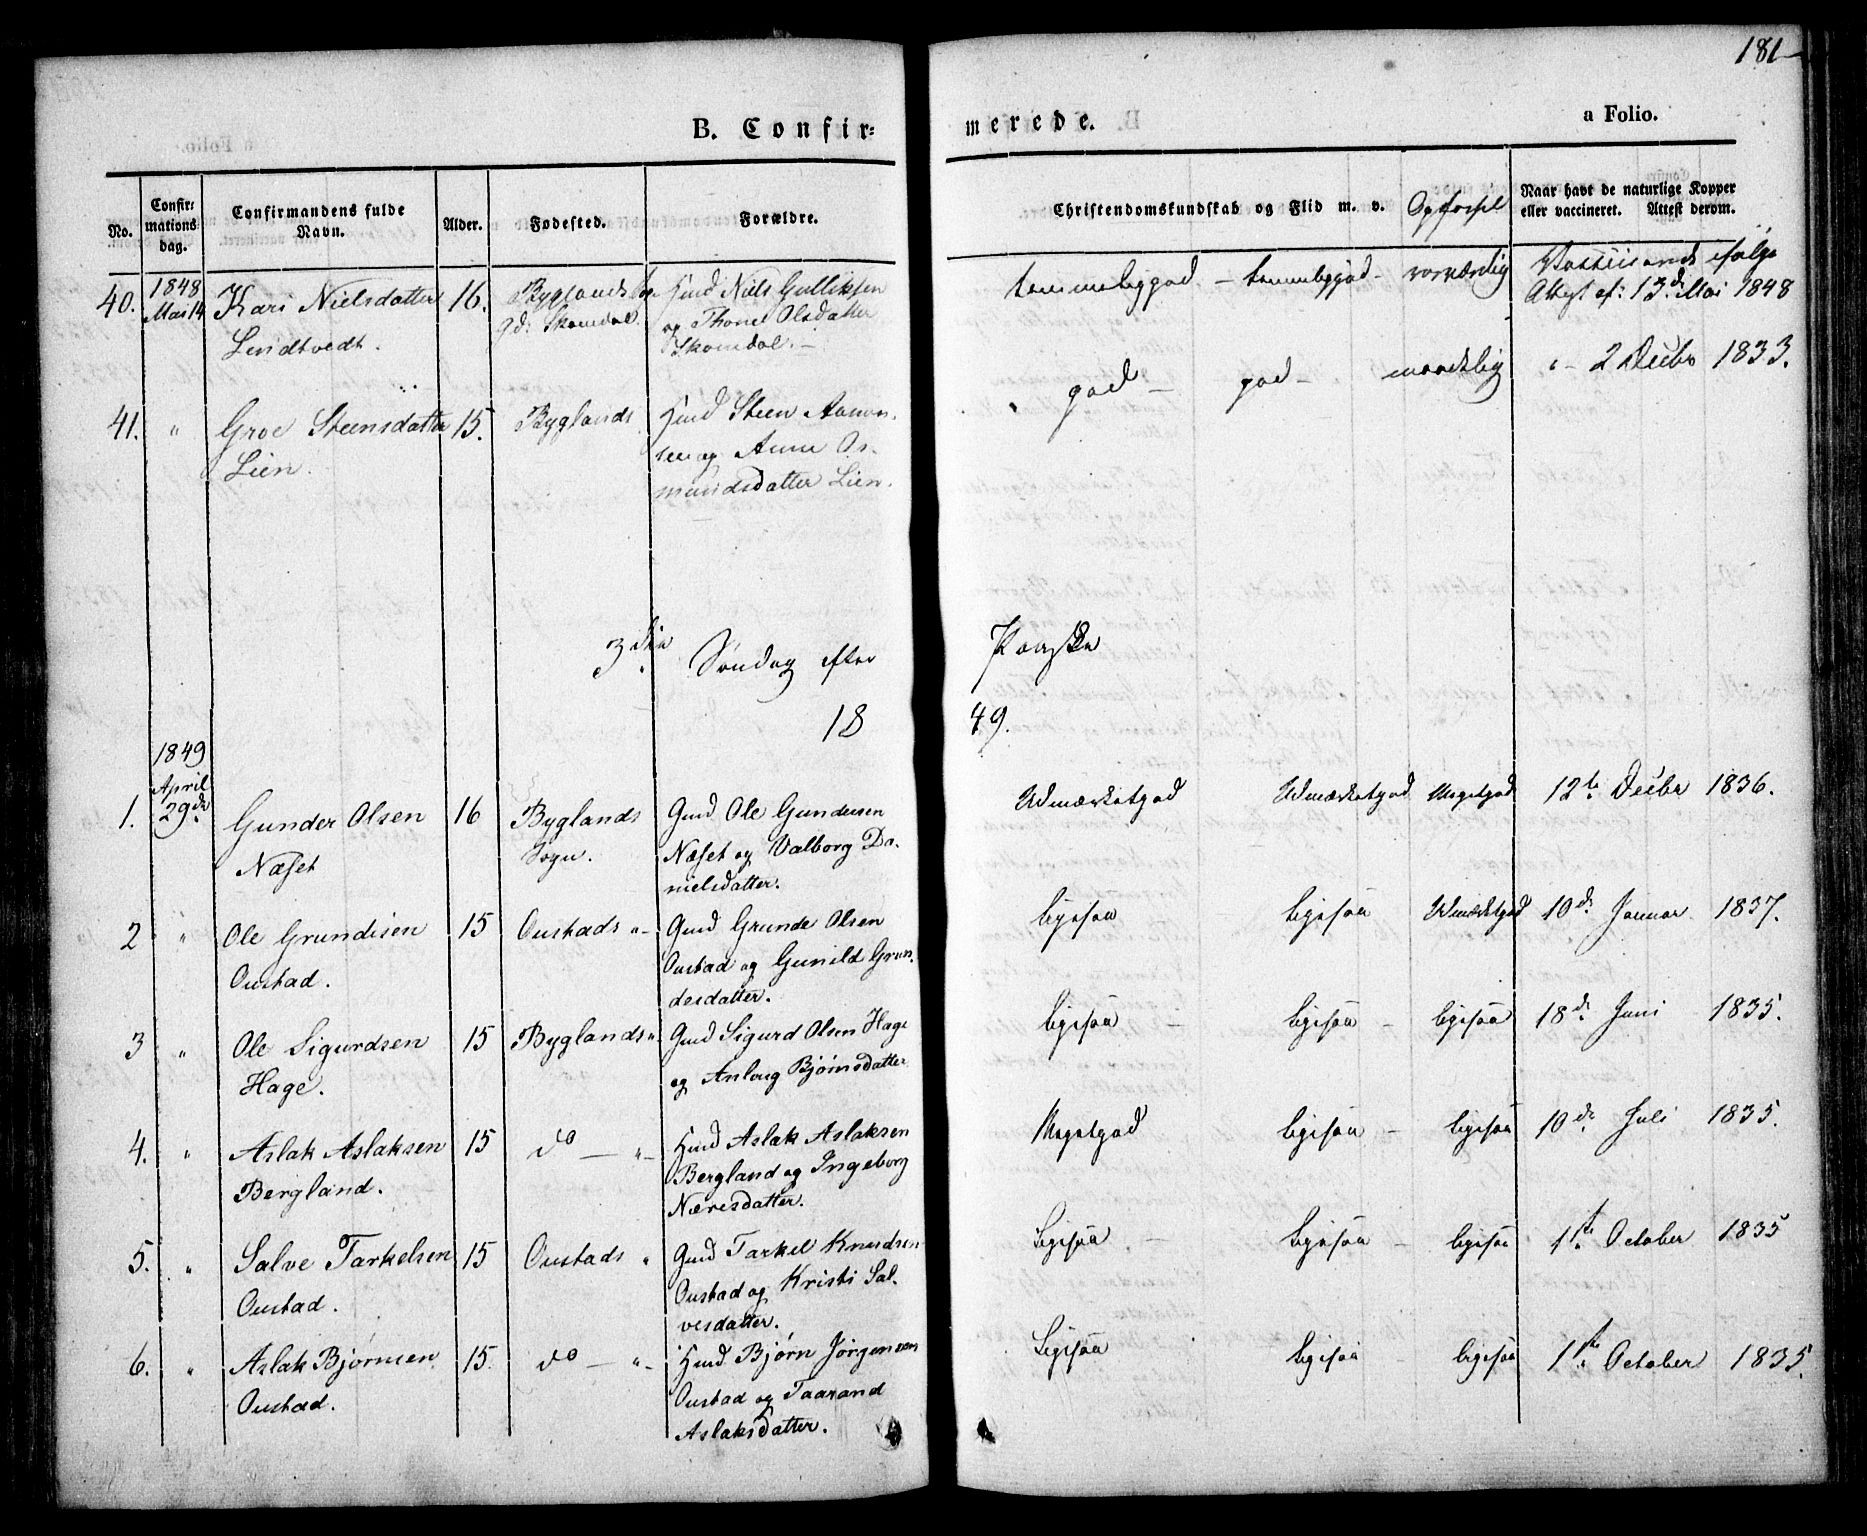 181
B. Confir=
merede.
a Folio.
No.
Confir=
mations
dag.
Confirmandens fulde
Navn.
Alder.
Fødested.
Forældre.
Christendomskundskab og Flid m. v.
Opførsel
Naar havt de naturlige Kopper
eller vaccineret. Attest derom.
40. 1848 Mai 14 Kari Nielsdatter 16. Byglands
Lendtvedt. gd: Skomdal.
Gmd Niels Gulliksen
og Thone Olsdatter
Skomdal.
temmeliggod - temmeliggod - vorværdig Vaccineret ifølge
Attest af: 13de Mai 1848
41. " Groe Steensdatter 15. Byglands
Lien.
Gmd Steen Aanon-
sen og Anne Os-
mundsdatter Lien.
god - god - maadelig " - 2 Decbr 1833.
3die Søndag efter Paaske
1849.
1849
April
1. 29de Gunder Olsen 16 Byglands
Næset Sogn.
Gmd Ole Gundersen
Næset og Valborg Da-
nielsdatter.
Udmærketgod Udmærketgod Megetgod 12te Decbr 1836.
2 " Ole Grundesen 15 Oustads "-
Oustad.
Gmd Grunde Olsen
Oustad og Gunild Grun-
desdatter.
ligesaa ligesaa Udmærketgod 10de Januar 1837.
3 " Ole Sigurdsen 15 Byglands "
Hage.
Gmd Sigurd Olsen Hage
og Anlaug Bjørnsdatter
ligesaa - ligesaa - ligesaa 18de Juni 1835.
4. " Aslak Aslaksen 15 do - "-
Bergland.
Gmd Aslak Aslaksen
Bergland og Ingeborg
Næresdatter.
Megetgod ligesaa - ligesaa 10de Juli 1835.
5. " Salve Tarkelsen 15 Oustads "
Oustad.
Gmd Tarkel Knudsen
Oustad og Kristi Sal-
vesdatter.
Ligesaa - ligesaa - ligesaa 1ste October 1835
6. " Aslak Bjørnsen 15. do - "-
Oustad.
Gmd Bjørn Jørgensen
Oustad og Taarand
Aslaksdatter.
Ligesaa ligesaa ligesaa 1ste October 1835.